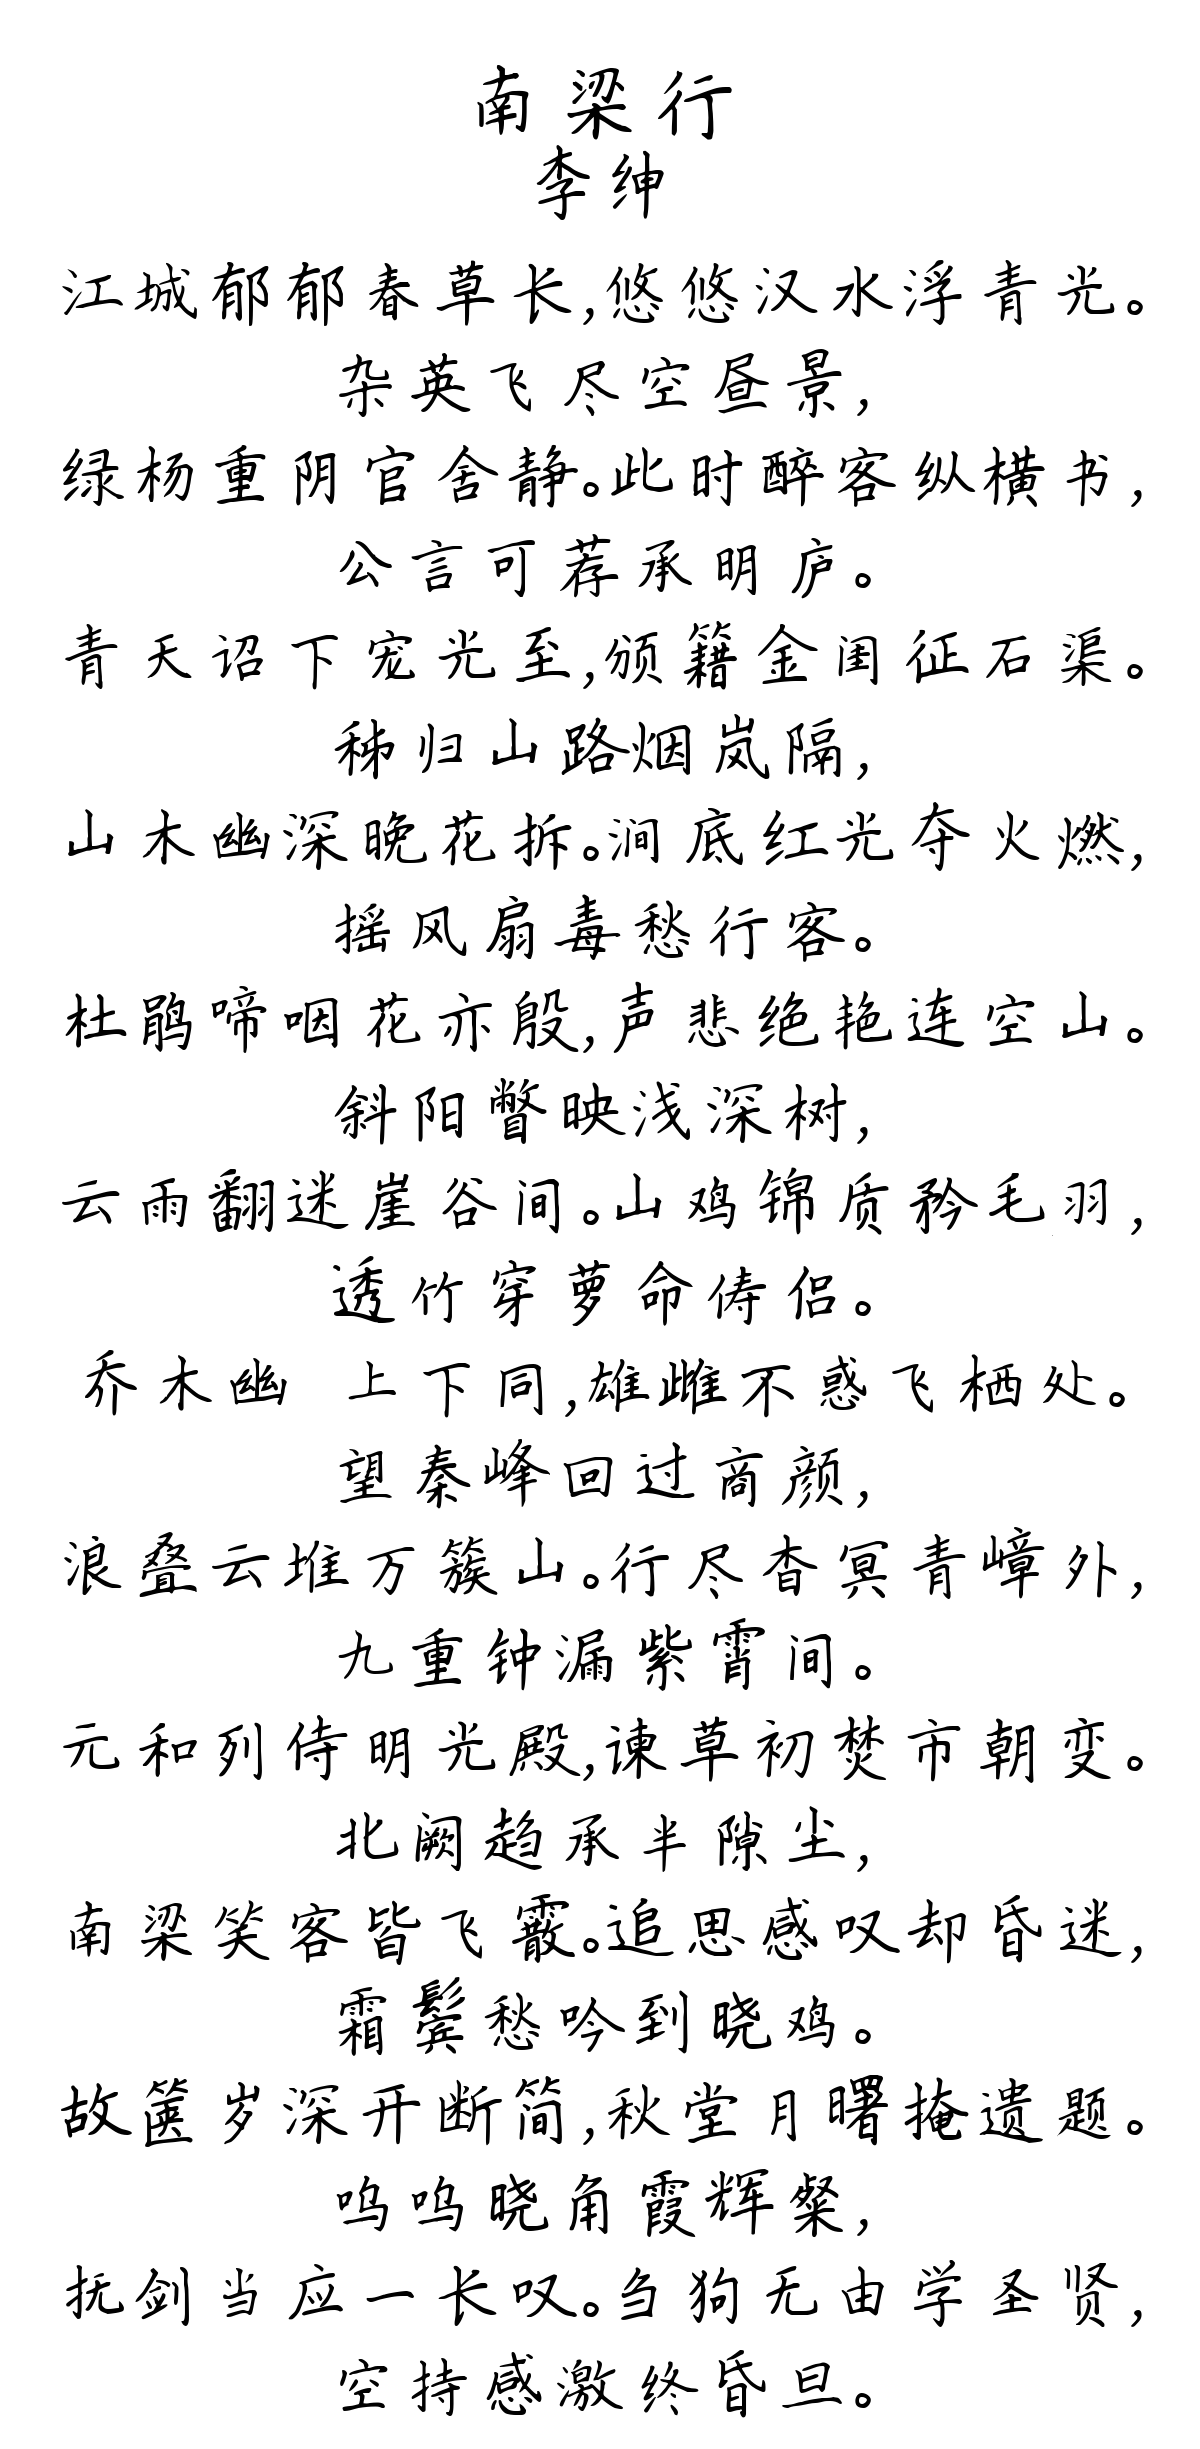 南梁行
李绅
江城郁郁春草长,悠悠汉水浮青光。
杂英飞尽空昼景,
绿杨重阴官舍静。此时醉客纵横书,
公言可荐承明庐。
青天诏下宠光至,颁籍金闺征石渠。
秭归山路烟岚隔,
山木幽深晚花拆。涧底红光夺火燃,
摇风扇毒愁行客。
杜鹃啼咽花亦殷,声悲绝艳连空山。
斜阳瞥映浅深树,
云雨翻迷崖谷间。山鸡锦质矜毛羽,
透竹穿萝命俦侣。
乔木幽 上下同,雄雌不惑飞栖处。
望秦峰回过商颜,
浪叠云堆万簇山。行尽杳冥青嶂外,
九重钟漏紫霄间。
元和列侍明光殿,谏草初焚市朝变。
北阙趋承半隙尘,
南梁笑客皆飞霰。追思感叹却昏迷,
霜鬓愁吟到晓鸡。
故箧岁深开断简,秋堂月曙掩遗题。
呜呜晓角霞辉粲,
抚剑当应一长叹。刍狗无由学圣贤,
空持感激终昏旦。